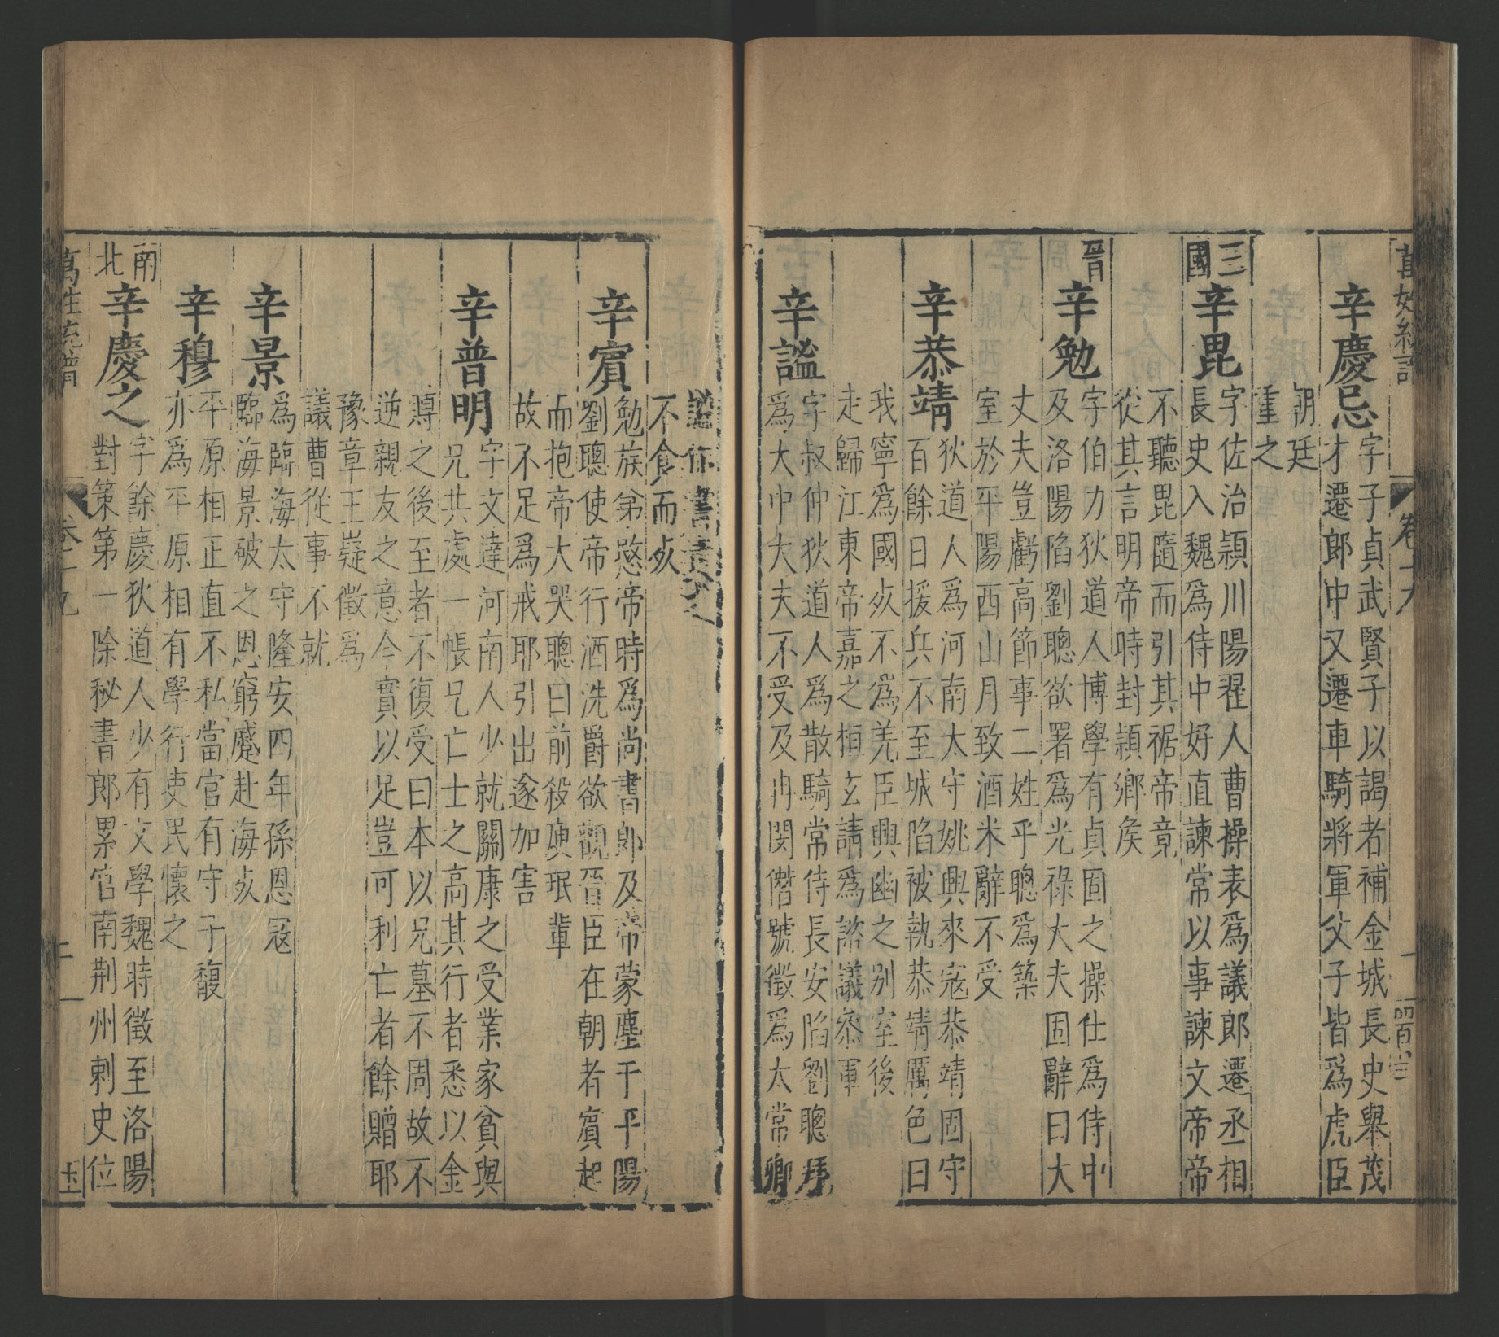 萬姓統譜
卷十九
辛慶忌
字子貞武賢子以謁者補金城長史舉茂
才遷郎中又遷車騎將軍父子皆為虎臣
朝廷
重之
三國
辛毘
字佐治頴川陽翟人曹操表為議郎遷丞相
長史入魏為侍中好直諫常以事諫文帝帝
不聽毘隨而引其裾帝竟
從其言明帝時封頴鄉矦
晉
辛勉
字伯力狄道人博學有貞固之操仕為侍中
及洛陽陷劉聰欲署為光祿大夫固辭曰大
丈夫豈虧高節事二姓乎聰為築
室於平陽西山月致酒米辭不受
辛恭靖
狄道人為河南太守姚興來寇恭靖固守
百餘日援兵不至城陷被執恭靖厲色曰
我寧為國死不為羌臣興幽之別室後
走歸江東帝嘉之桓玄請為諮議參軍
辛謐
字叔仲狄道人為散騎常侍長安陷劉聰拜
為太中大夫不受及冉閔僭號徵為太常卿
不食而死
辛賓
勉族弟愍帝時為尚書郎及帝蒙塵于平陽
劉聰使帝行酒洗爵欲觀晉臣在朝者賓起
而抱帝大哭聰曰前殺庾珉輩
故不足為戒耶引出遂加害
辛普明
字文達河南人少就關康之受業家貧與
兄共處一帳兄亡士之高其行者悉以金
賻之後至者不復受曰本以兄墓不周故不
逆親友之意今實以足豈可利亡者餘贈耶
豫章王嶷徵為
議曹從事不就
辛景
為臨海太守隆安四年孫恩寇
臨海景破之恩窮蹙赴海死
辛穆
平原相正直不私當官有守子馥
亦為平原相有學行吏民懷之
南北
辛慶之
字餘慶狄道人少有文學魏時徵至洛陽
對策第一除秘書郎累官南荆州刺史位
萬姓統譜
卷十九